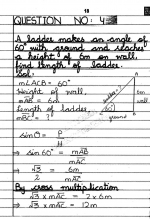 18
QUESTION NO: 4
A ladder makes an angle of
60° with ground and reaches
a height of 6m on wall,
find length of ladder.
Sol:
m∠ACB = 60°
Height of wall,
mAB = 6m
Length of ladder,
mAC = ?
A
wall
60°
ground
sinθ = P/H
⇒ sin 60° = mAB/mAC
⇒ √3/2 = 6m/mAC
By cross multiplication
⇒ √3 × mAC = 2 × 6m
⇒ √3 × mAC = 12m